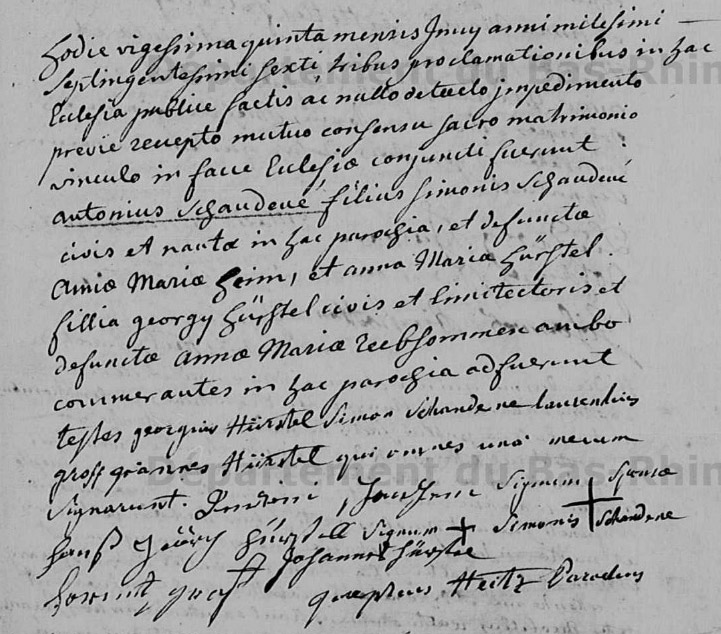 hodie vigessima quinta mensis Junij anni milesimi
septingentesimi sexti, tribus proclamationibus in hac
Ecclesia publice factis ac nullo detecto jmpedimento
previe recepto mutuo consensu sacro matrimonio
vinculo in facie Ecclesiæ conjuncti fuerunt :
antonius Schaudené filius simonis Schaudené
civis et nautæ in hac parochia, et defunctæ
Annæ Mariæ heim, et anna Maria hürstel.
fillia georgy hürstel civis et linitectoris et
defunctæ Annæ Mariæ Rebsommen ambo
commerantes in hac parochia adfuerunt
testes georgius Hürstel Simon Schaudene laurentius
groff joannes Hürstel qui omnes uno mecum
signarunt. Signum sponsæ
hanß Jeörg hürstell signum Simonis Schaudene
Johannes hürstel
Lorentz graff Heitz Parochus
Département du Bas-Rhin
Département du Bas-Rhin